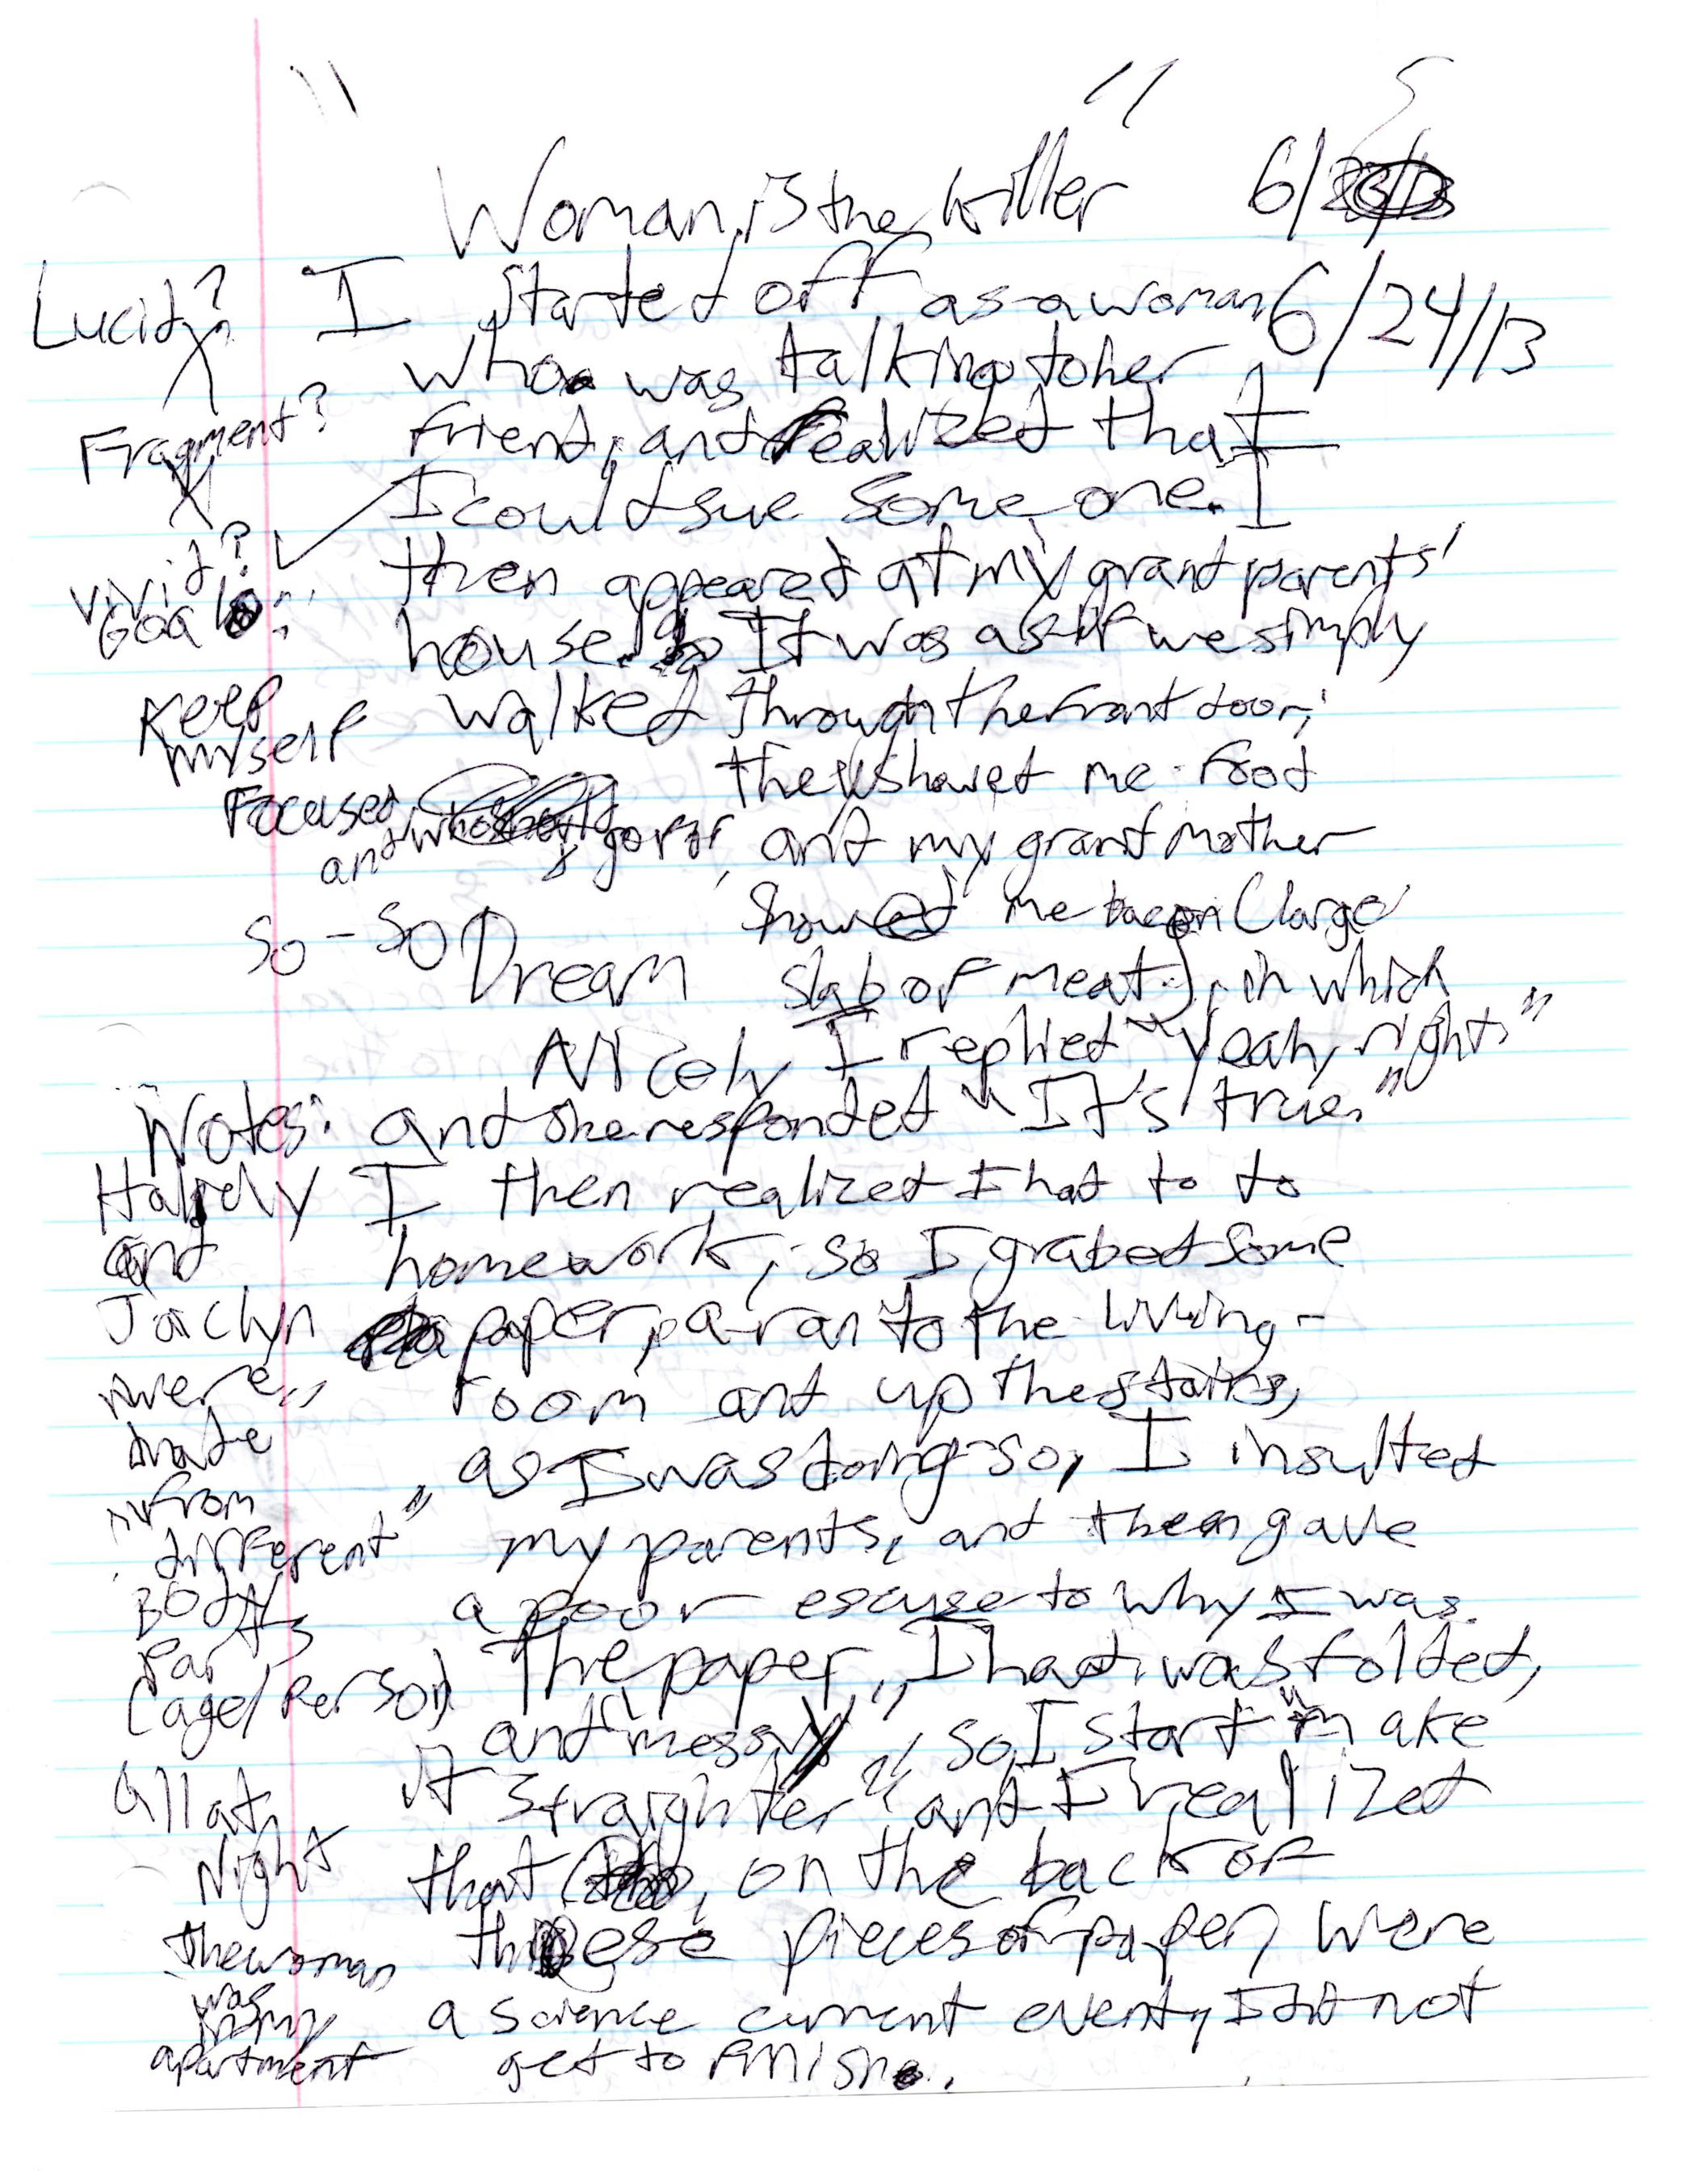 "Woman is the killer"
6/24/13
Lucid? X
Fragment? X
Vivid? ✓
Goal:
Keep
myself
Focused
and
So-So Dream
Nicely
Notes:
and
Jaclyn
were
made
from
"different"
Body
Parts
(age/Person)
all at
Night
the woman
was
in my
apartment
I started off as a woman
who was talking to her
friend, and realized that
I could sue some one. I
then appeared at my grandparents'
house. It was as if we simply
walked through the front door;
they showed me food
and my grandmother
showed me bacon (large
slab of meat), in which
I replied "Yeah, right."
and she responded "It's true."
I then realized I had to do
homework, so I grabed some
paper, ran to the living-
room and up the stairs,
as I was doing so, I insulted
my parents, and then gave
a poor escuse to why I was.
The paper, I had was folded,
and "messy", so I start "make
it straighter" and I realized
that, on the back of
these pieces of paper, were
a science current event, I did not
get to finish.